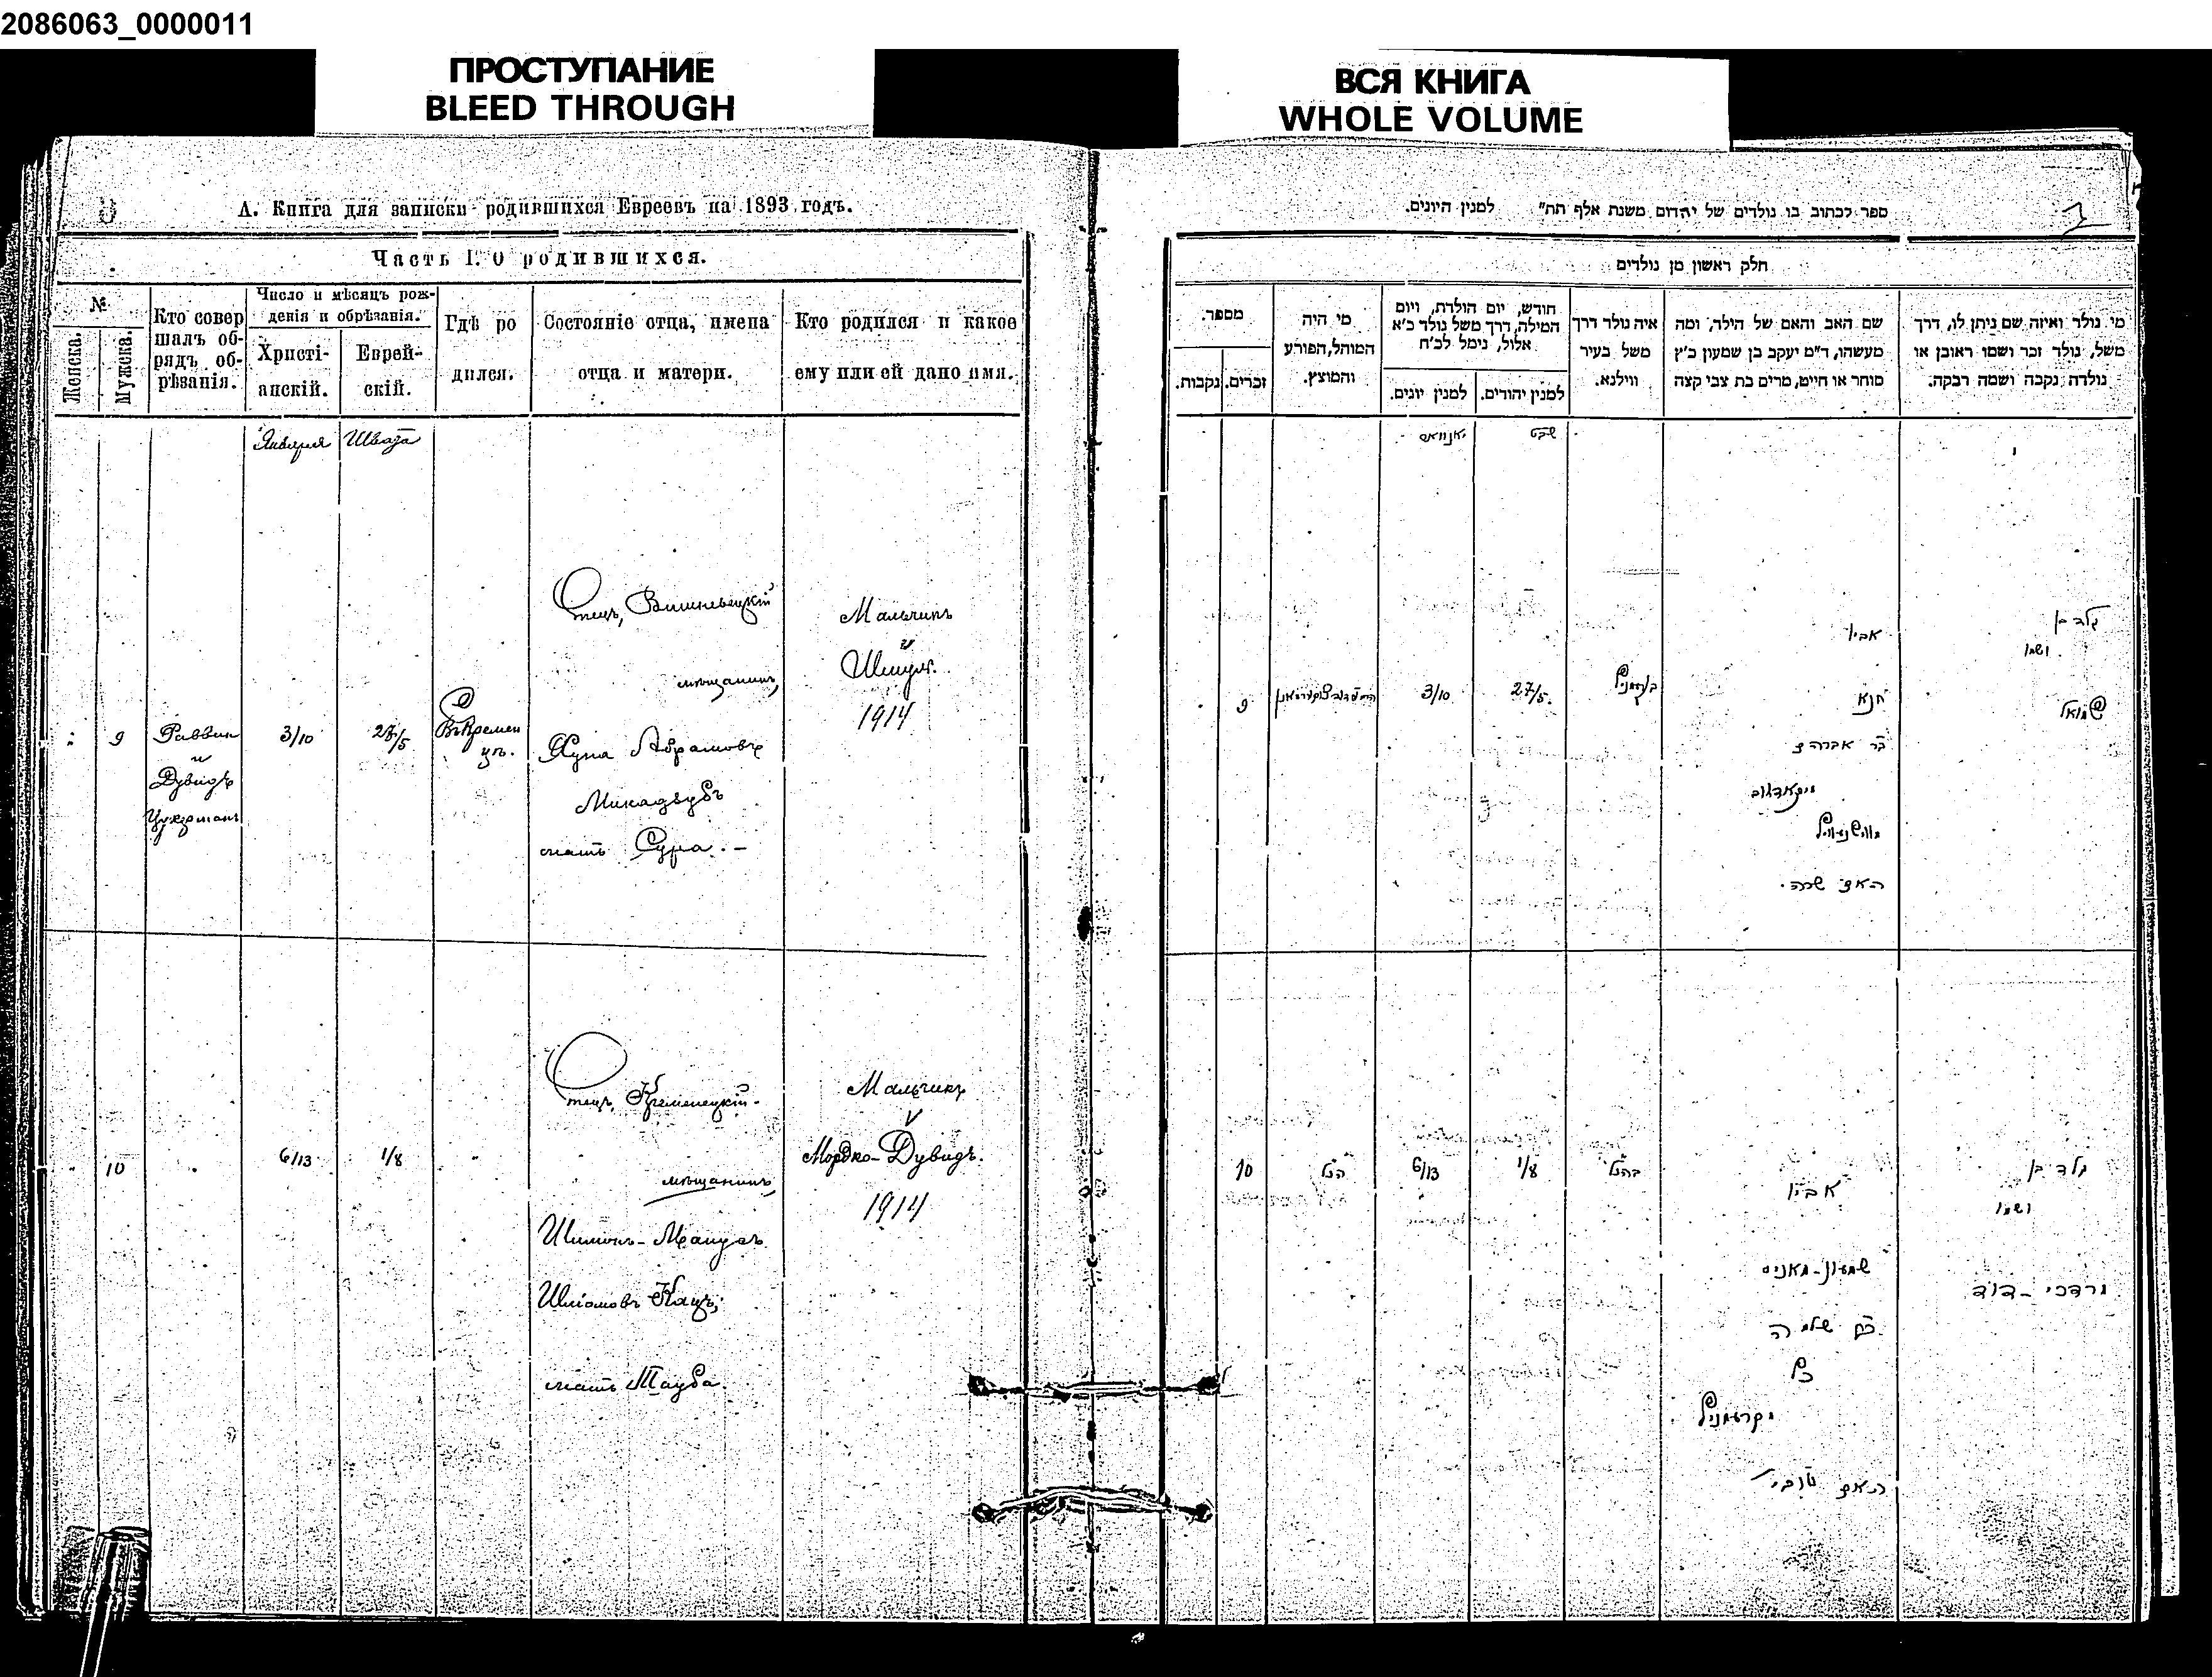 2086063_0000011
ПРОСТУПАНИЕ
BLEED THROUGH
ВСЯ КНИГА
WHOLE VOLUME
А. Книга для записки родившихся Евреевъ на 1893 годъ.
Часть I. О родившихся.
№
Женска.
Мужска.
Кто совер
шалъ об-
рядъ об-
рѣзанія.
Число и мѣсяцъ рож-
денія и обрѣзанія.
Христі-
анскій.
Еврей-
скій.
Гдѣ ро
дился.
Состояніе отца, имена
отца и матери.
Кто родился и какое
ему или ей дано имя.
Января
Швата
9
Раввин
и
Дувидъ
Цукерманъ
3/10
27/5
Въ Кремен
цѣ.
Отецъ, Вишневецкій
мѣщанинъ,
Абрамовъ
мать Сура. –
Мальчикъ
Шмуль.
1914
10
6/13
1/8
Отецъ, Кременецкій
мѣщанинъ,
Шимонъ-Манусъ
Шліомовъ Кацъ,
мать Тауба.
Мальчикъ
Мордко-Дувидъ.
1914
ספר לכתוב בו נולדים של יהודים משנת אלף תת״ למנין היונים.
חלק ראשון מן נולדים
מספר.
נקבות.
זכרים.
מי היה
המוהל, הפורע
והמוצץ.
חודש, יום הולדת, ויום
המילה, דרך משל נולד כ׳א
אלול, נימל לכ׳ח
למנין יונים.
למנין יהודים.
איה נולד דרך
משל בעיר
ווילנא.
שם האב והאם של הילד, ומה
מעשהו, ד״מ יעקב בן שמעון כ׳ץ
סוחר או חייט, מרים בת צבי קצה
מי נולד ואיזה שם ניתן לו, דרך
משל, נולד זכר ושמו ראובן או
נולדה נקבה ושמה רבקה.
שבט
9
3/10
27/5.
אביו
בר אברהם
האם שרה.
נולד בן
ושמו
שמואל
10
הנ״ל
6/13
1/8
בהנ״ל
אביו
שמעון-מאניס
שלמה
כץ
נולד בן
ושמו
מרדכי-דוד